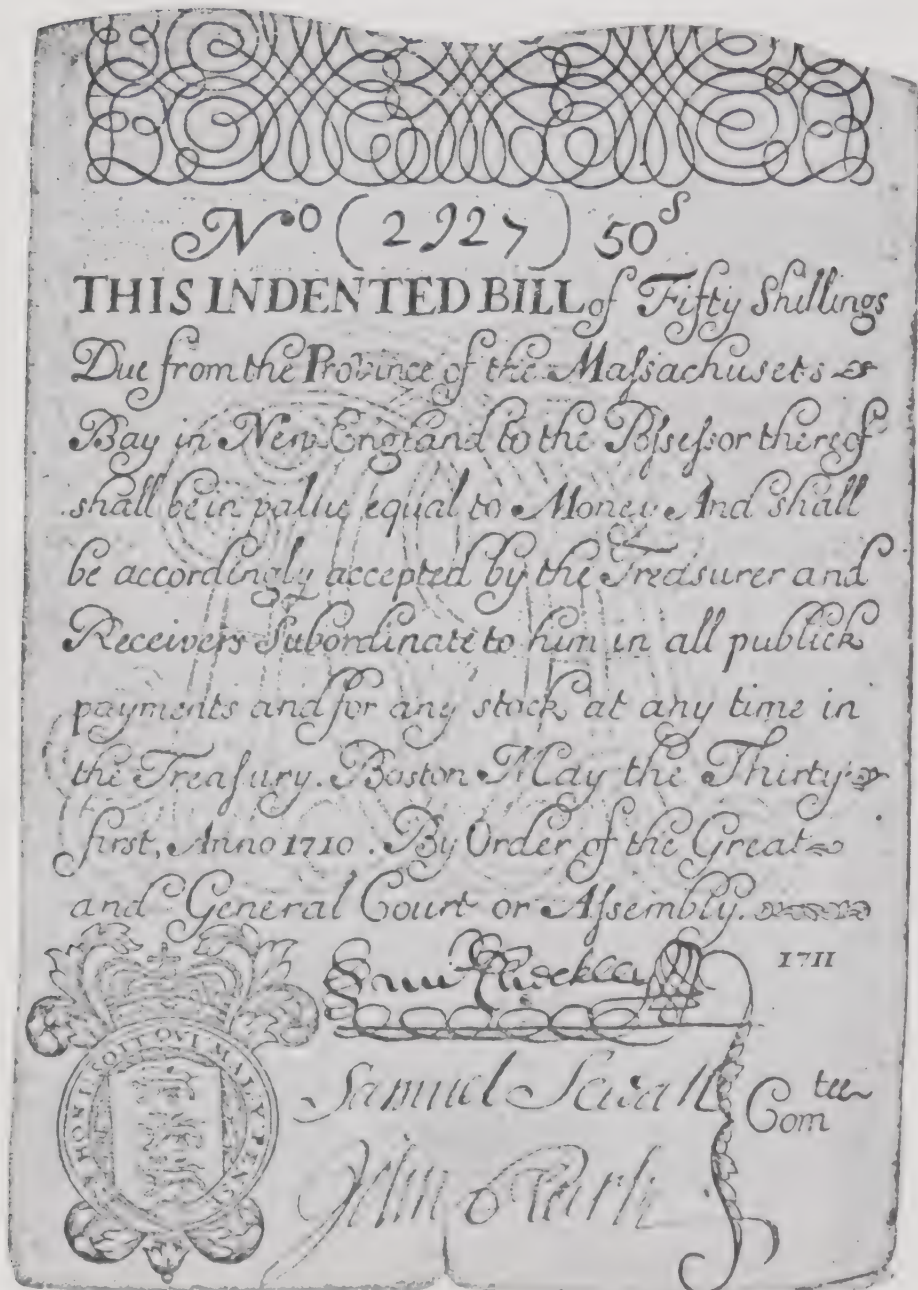 No (2927) 50s
THIS INDENTED BILL of Fifty Shillings
Due from the Province of the Maſsachusets
Bay in New-England to the Poſseſsor thereof
shall be in value equal to Money And shall
be accordingly accepted by the Treasurer and
Receivers Subordinate to him in all publick
payments and for any stock at any time in
the Treaſury. Boston May the Thirty
first, Anno 1710. By Order of the Great
and General Court or Aſsembly.
1711
HONI SOIT QUI MAL Y PENS
Samuel Sewall
Comtee
John